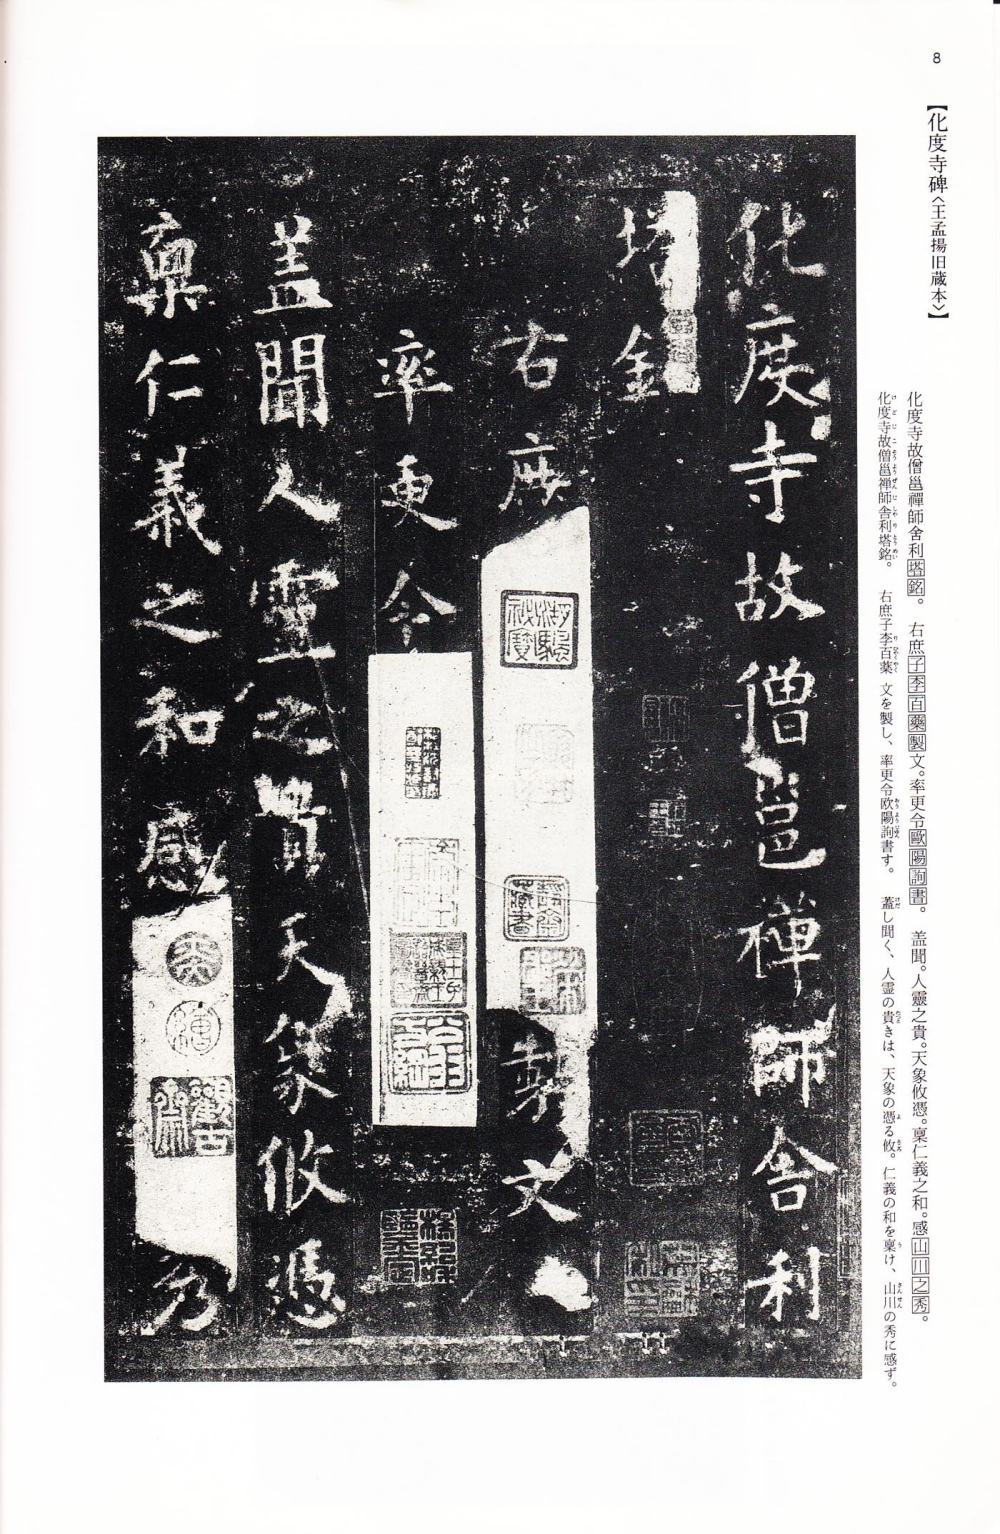 8
【化度寺碑〈王孟揚旧蔵本〉】
化度寺故僧邕禪師舍利塔銘。 右庶子李百藥製文。率更令歐陽詢書。 盖聞。人靈之貴。天象攸憑。稟仁義之和。感山川之秀。
化度寺故僧邕禅師舎利塔銘。 右庶子李百薬 文を製し、率更令欧陽詢書す。 蓋し聞く、人霊の貴きは、天象の憑る攸。仁義の和を稟け、山川の秀に感ず。
化度寺故僧邕禪師舍利
塔銘
右庶製文
率更令
盖聞人靈之貴天象攸憑
稟仁義之和感乃